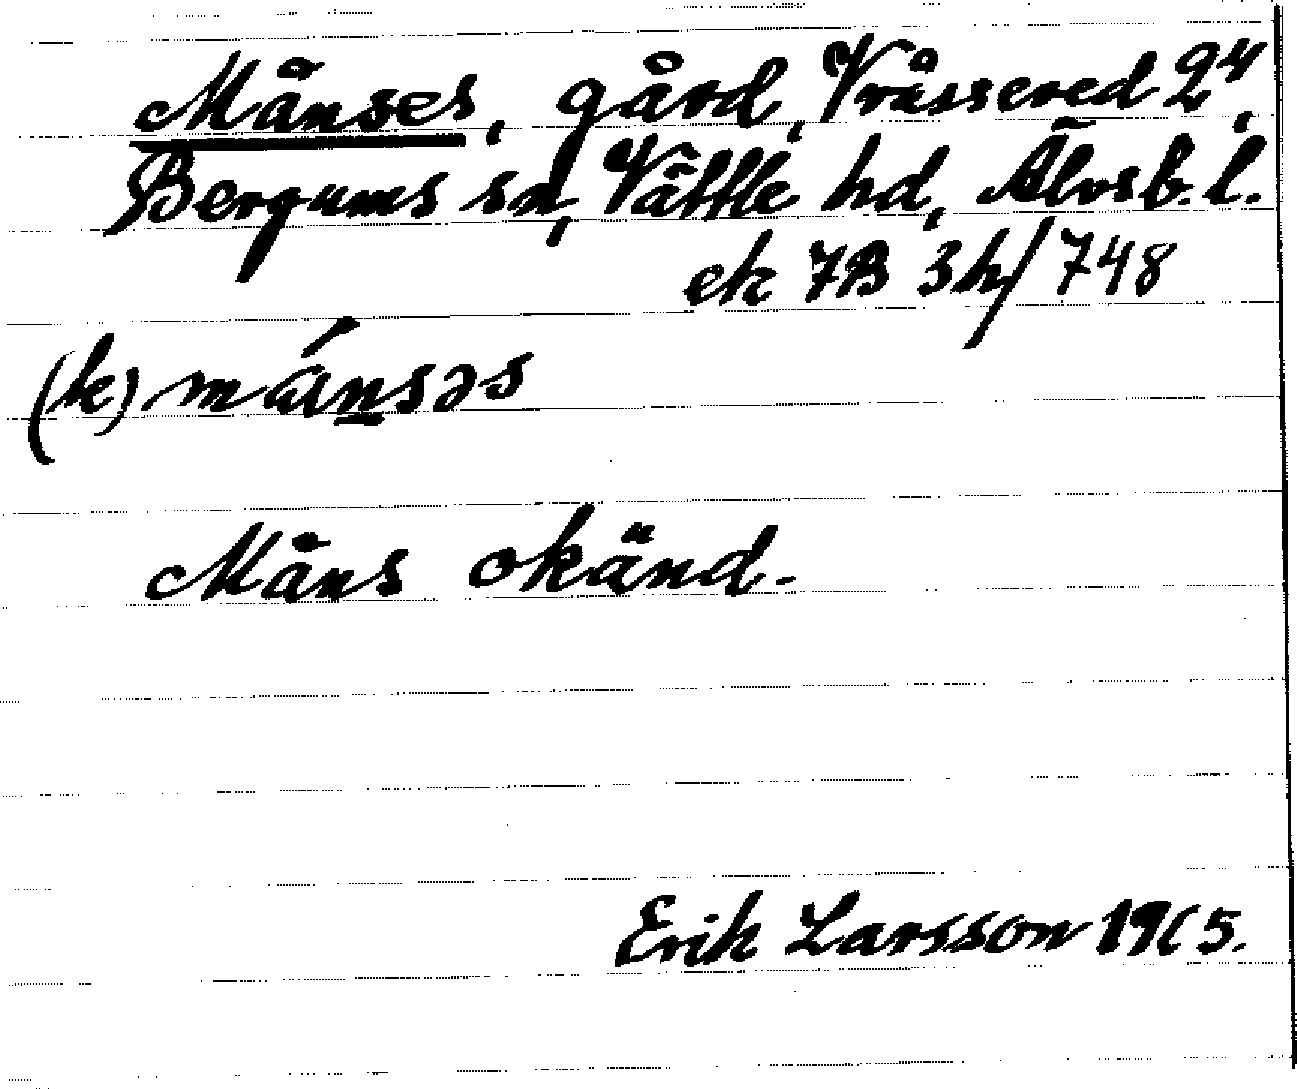 Månses, gård, Vråssered 2⁴,
Bergums sn, Vättle hd, Älvsb. l.
ek 7B 3h/748
(k) mánsəs
Måns okänd.
Erik Larsson 1965.